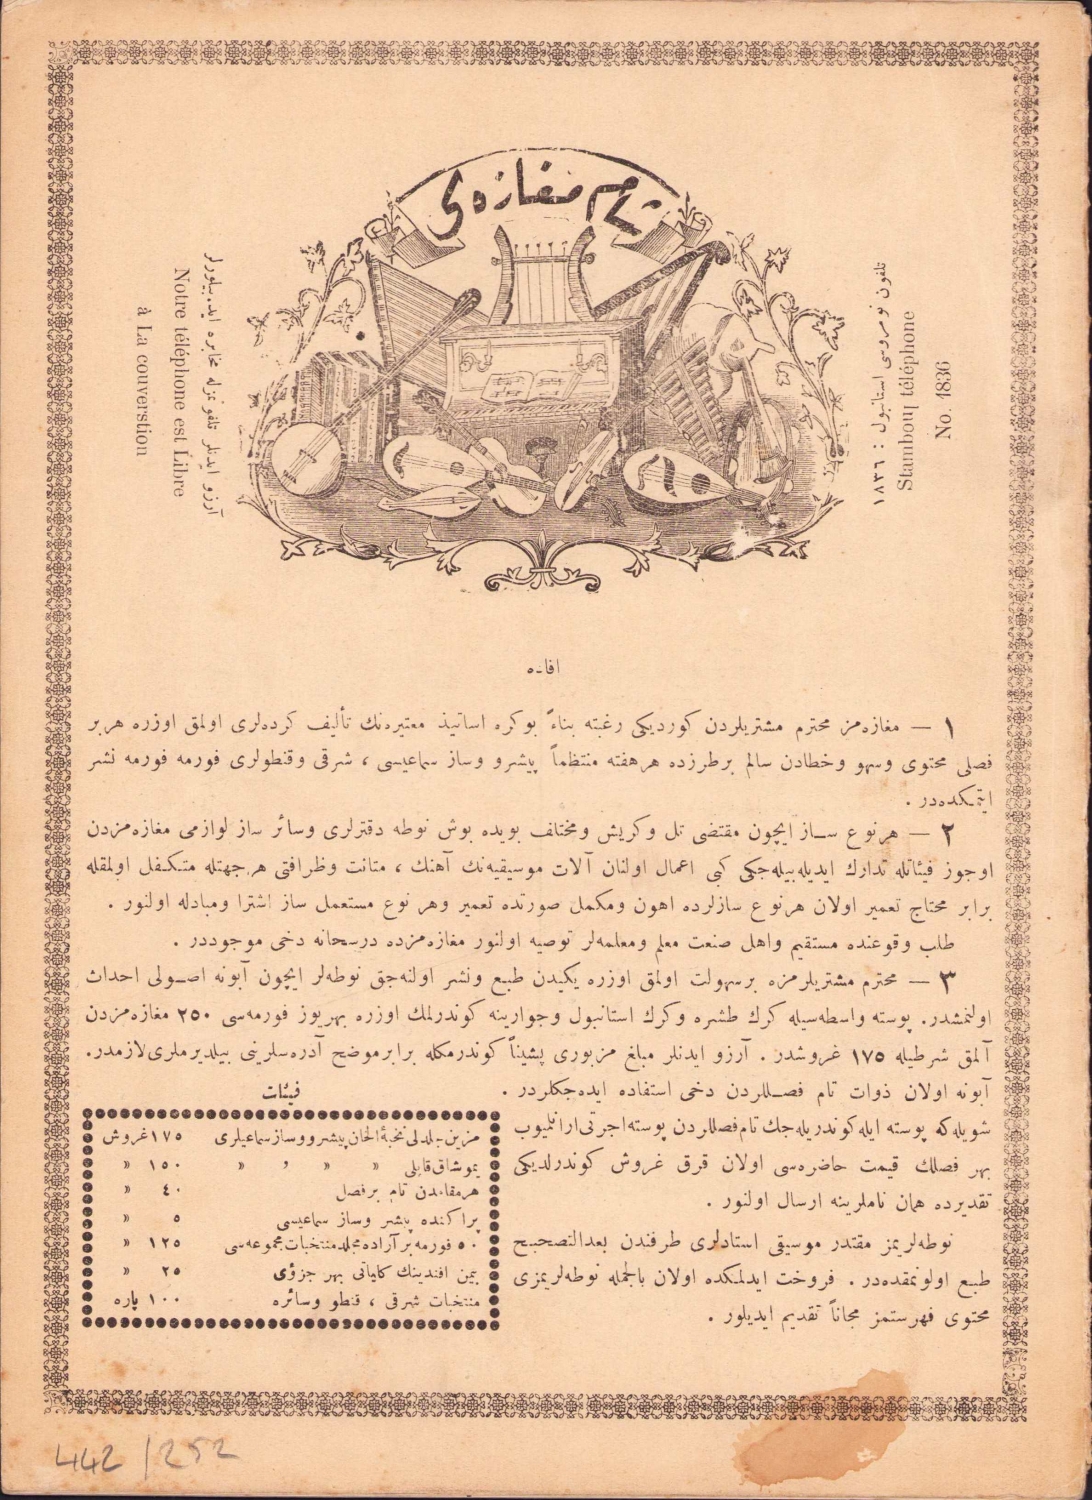 شامم مغازه‌سی
تلفون نومروسی استانبول : ١٨٣٦
Stamboul téléphone
No. 1836
آرزو ایدنلر تلفونمزله مخابره ایده‌بیلورلر
Notre téléphone est Libre
à La couverstion
افاده
١ — مغازه‌مز محترم مشتریلردن کوردیکی رغبته بناءً بوکره اساتیذ معتبره‌نك تألیف کرده‌لری اولمق اوزره هربر
فصلی محتوی وسهو وخطادن سالم برطرزده هرهفته منتظماً پیشرو وساز سماعیسی ، شرقی وقنطولری فورمه فورمه نشر
ایتمکده‌در .
٢ — هرنوع ساز ایچون مقتضی تل وکریش ومختلف بویده بوش نوطه دفترلری وسائر ساز لوازمی مغازه‌مزدن
اوجوز فیئاتله تدارك ایدیله‌بیله‌جکی کبی اعمال اولنان آلات موسیقیه‌نك آهنك ، متانت وظرافتی هرجهتله متکفل اولمقله
برابر محتاج تعمیر اولان هرنوع سازلرده اهون ومکمل صورتده تعمیر وهر نوع مستعمل ساز اشترا ومبادله اولنور .
طلب وقوعنده مستقیم واهل صنعت معلم ومعلمه‌لر توصیه اولنور مغازه‌مزده درسخانه دخی موجوددر .
٣ — محترم مشتریلرمزه برسهولت اولمق اوزره یکیدن طبع ونشر اولنه‌جق نوطه‌لر ایچون آبونه اصولی احداث
اولنمشدر. پوسته واسطه‌سیله کرك طشره وکرك استانبول وجوارینه کوندرلمك اوزره بهریوز فورمه‌سی ٢٥٠ مغازه‌مزدن
آلمق شرطیله ١٧٥ غروشدر . آرزو ایدنلر مبلغ مزبوری پشیناً کوندرمکله برابر موضح آدره‌سلرینی بیلدیرملری لازمدر.
آبونه اولان ذوات تام فصللردن دخی استفاده ایده‌جکلردر .
شویله‌که پوسته ایله کوندریله‌جك تام فصللردن پوسته اجرتی آرانلمیوب
بهر فصلك قیمت حاضره‌سی اولان قرق غروش کوندرلدیکی
تقدیرده همان ناملرینه ارسال اولنور .
نوطه‌لریمز مقتدر موسیقی استادلری طرفندن بعدالتصحیح
طبع اولونمقده‌در . فروخت ایدلمکده اولان بالجمله نوطه‌لریمزی
محتوی فهرستمز مجاناً تقدیم ایدیلور .
فیئات
مزین جلدلی نخبة الحان پیشرو وساز سماعیلری ١٧٥ غروش
یموشاق قابلی » » , » ١٥٠ »
هرمقامدن تام برفصل ٤٠ »
پراکنده پیشرو وساز سماعیسی ٥ »
٥٠ فورمه بر آراده مجلد منتخبات مجموعه‌سی ١٢٥ »
یمین افندینك کلیاتی بهر جزؤی ٢٥ »
منتخبات شرقی ، قنطو وسائره ١٠٠ پاره
442 / 252